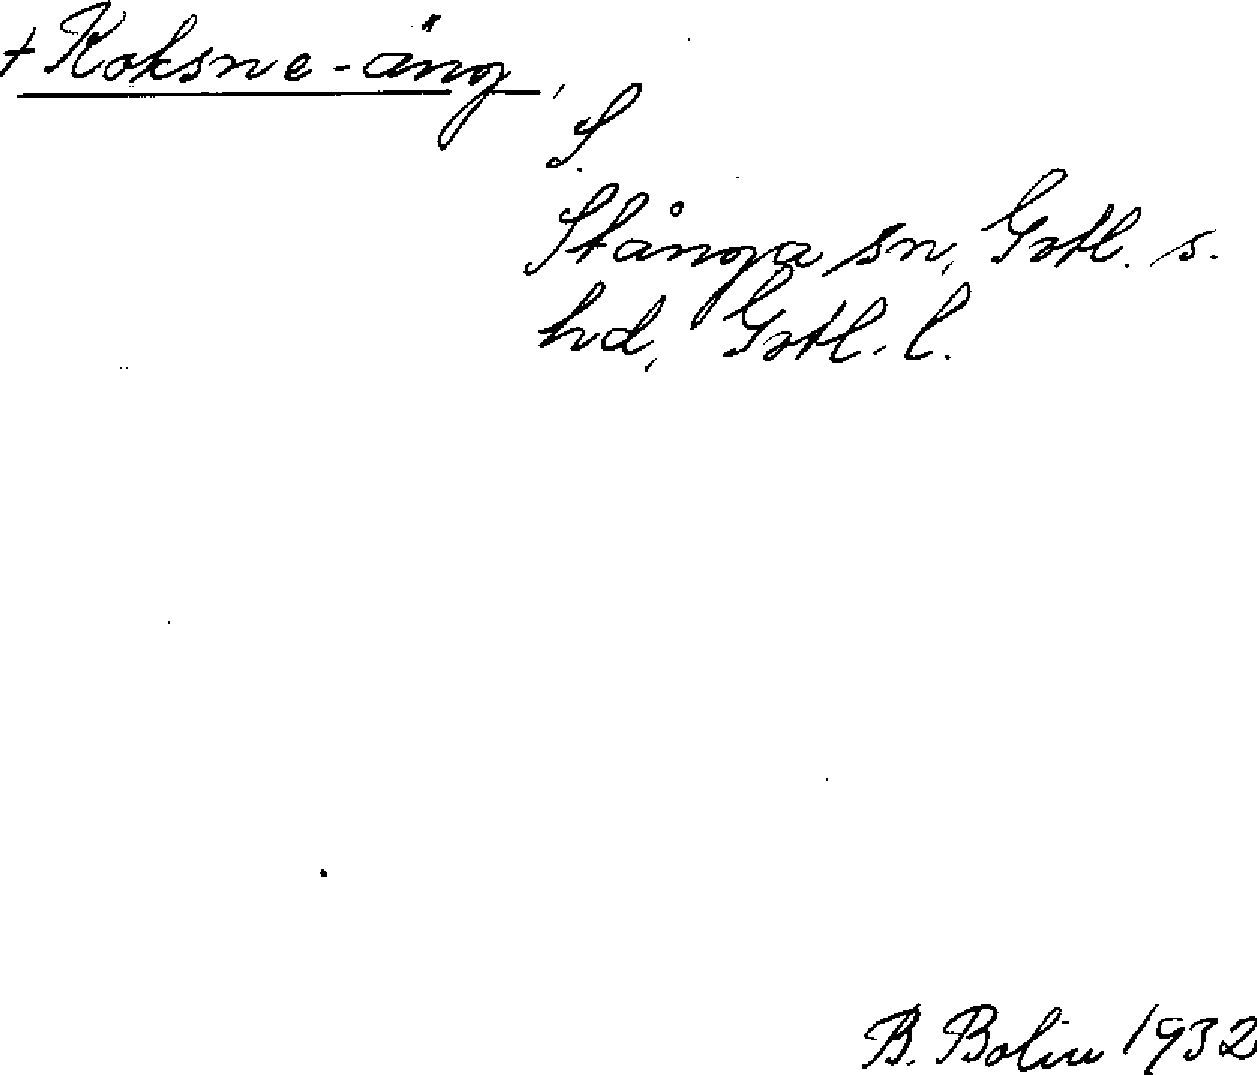 + Koksne-äng,
S.
Stånga sn, Gotl. s.
hd, Gotl. l.
B. Bolin 1932